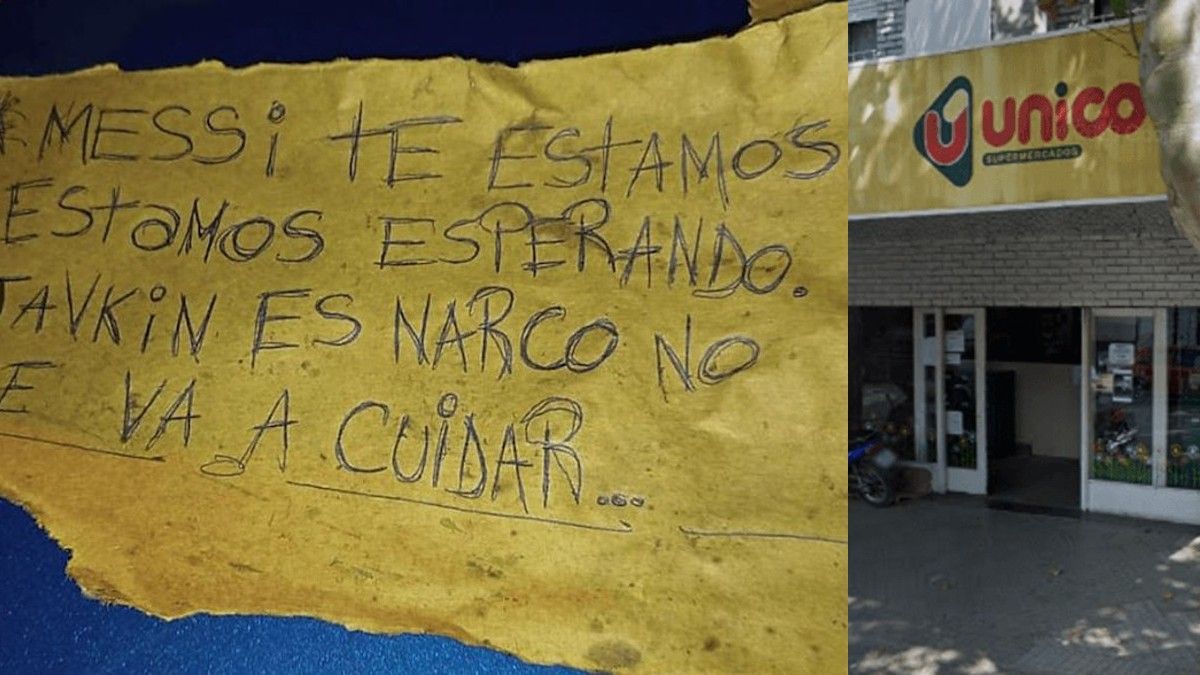 MESSi tE EStAMOS
EStaMOS ESPERANDO.
JAVKiN ES NARCO NO
E VA A CUiDAR...
unico
SUPERMERCADOS